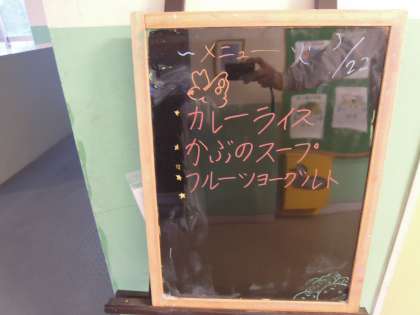 ～メニュー 火 3/22
カレーライス
かぶのスープ
フルーツヨーグルト